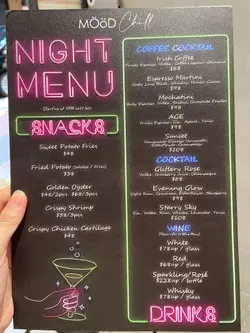 MOOD Chill
NIGHT
MENU
Starting at 5PM until late
SNACKS
Sweet Potato Fries
$98
Fried Potato (Wedges / Fries)
$88
Golden Oyster
$68/2pcs | $98/3pcs
Crispy Shrimp
$98/5pcs
Crispy Chicken Cartilage
$98
COFFEE COCKTAIL
Irish Coffee
$98
Espresso Martini
$98
Mochatini
$98
AGE
$98
Sunset
$108
COCKTAIL
Glittery Rosé
$98
Evening Glow
$98
Starry Sky
Gin, Vodka, Rum, Whisky, Lavender, Tonic
$108
WINE
White
$78up / glass
Red
$68up / glass
Sparkling/Rosé
$228up / bottle
Whisky
$78up / glass
DRINKS